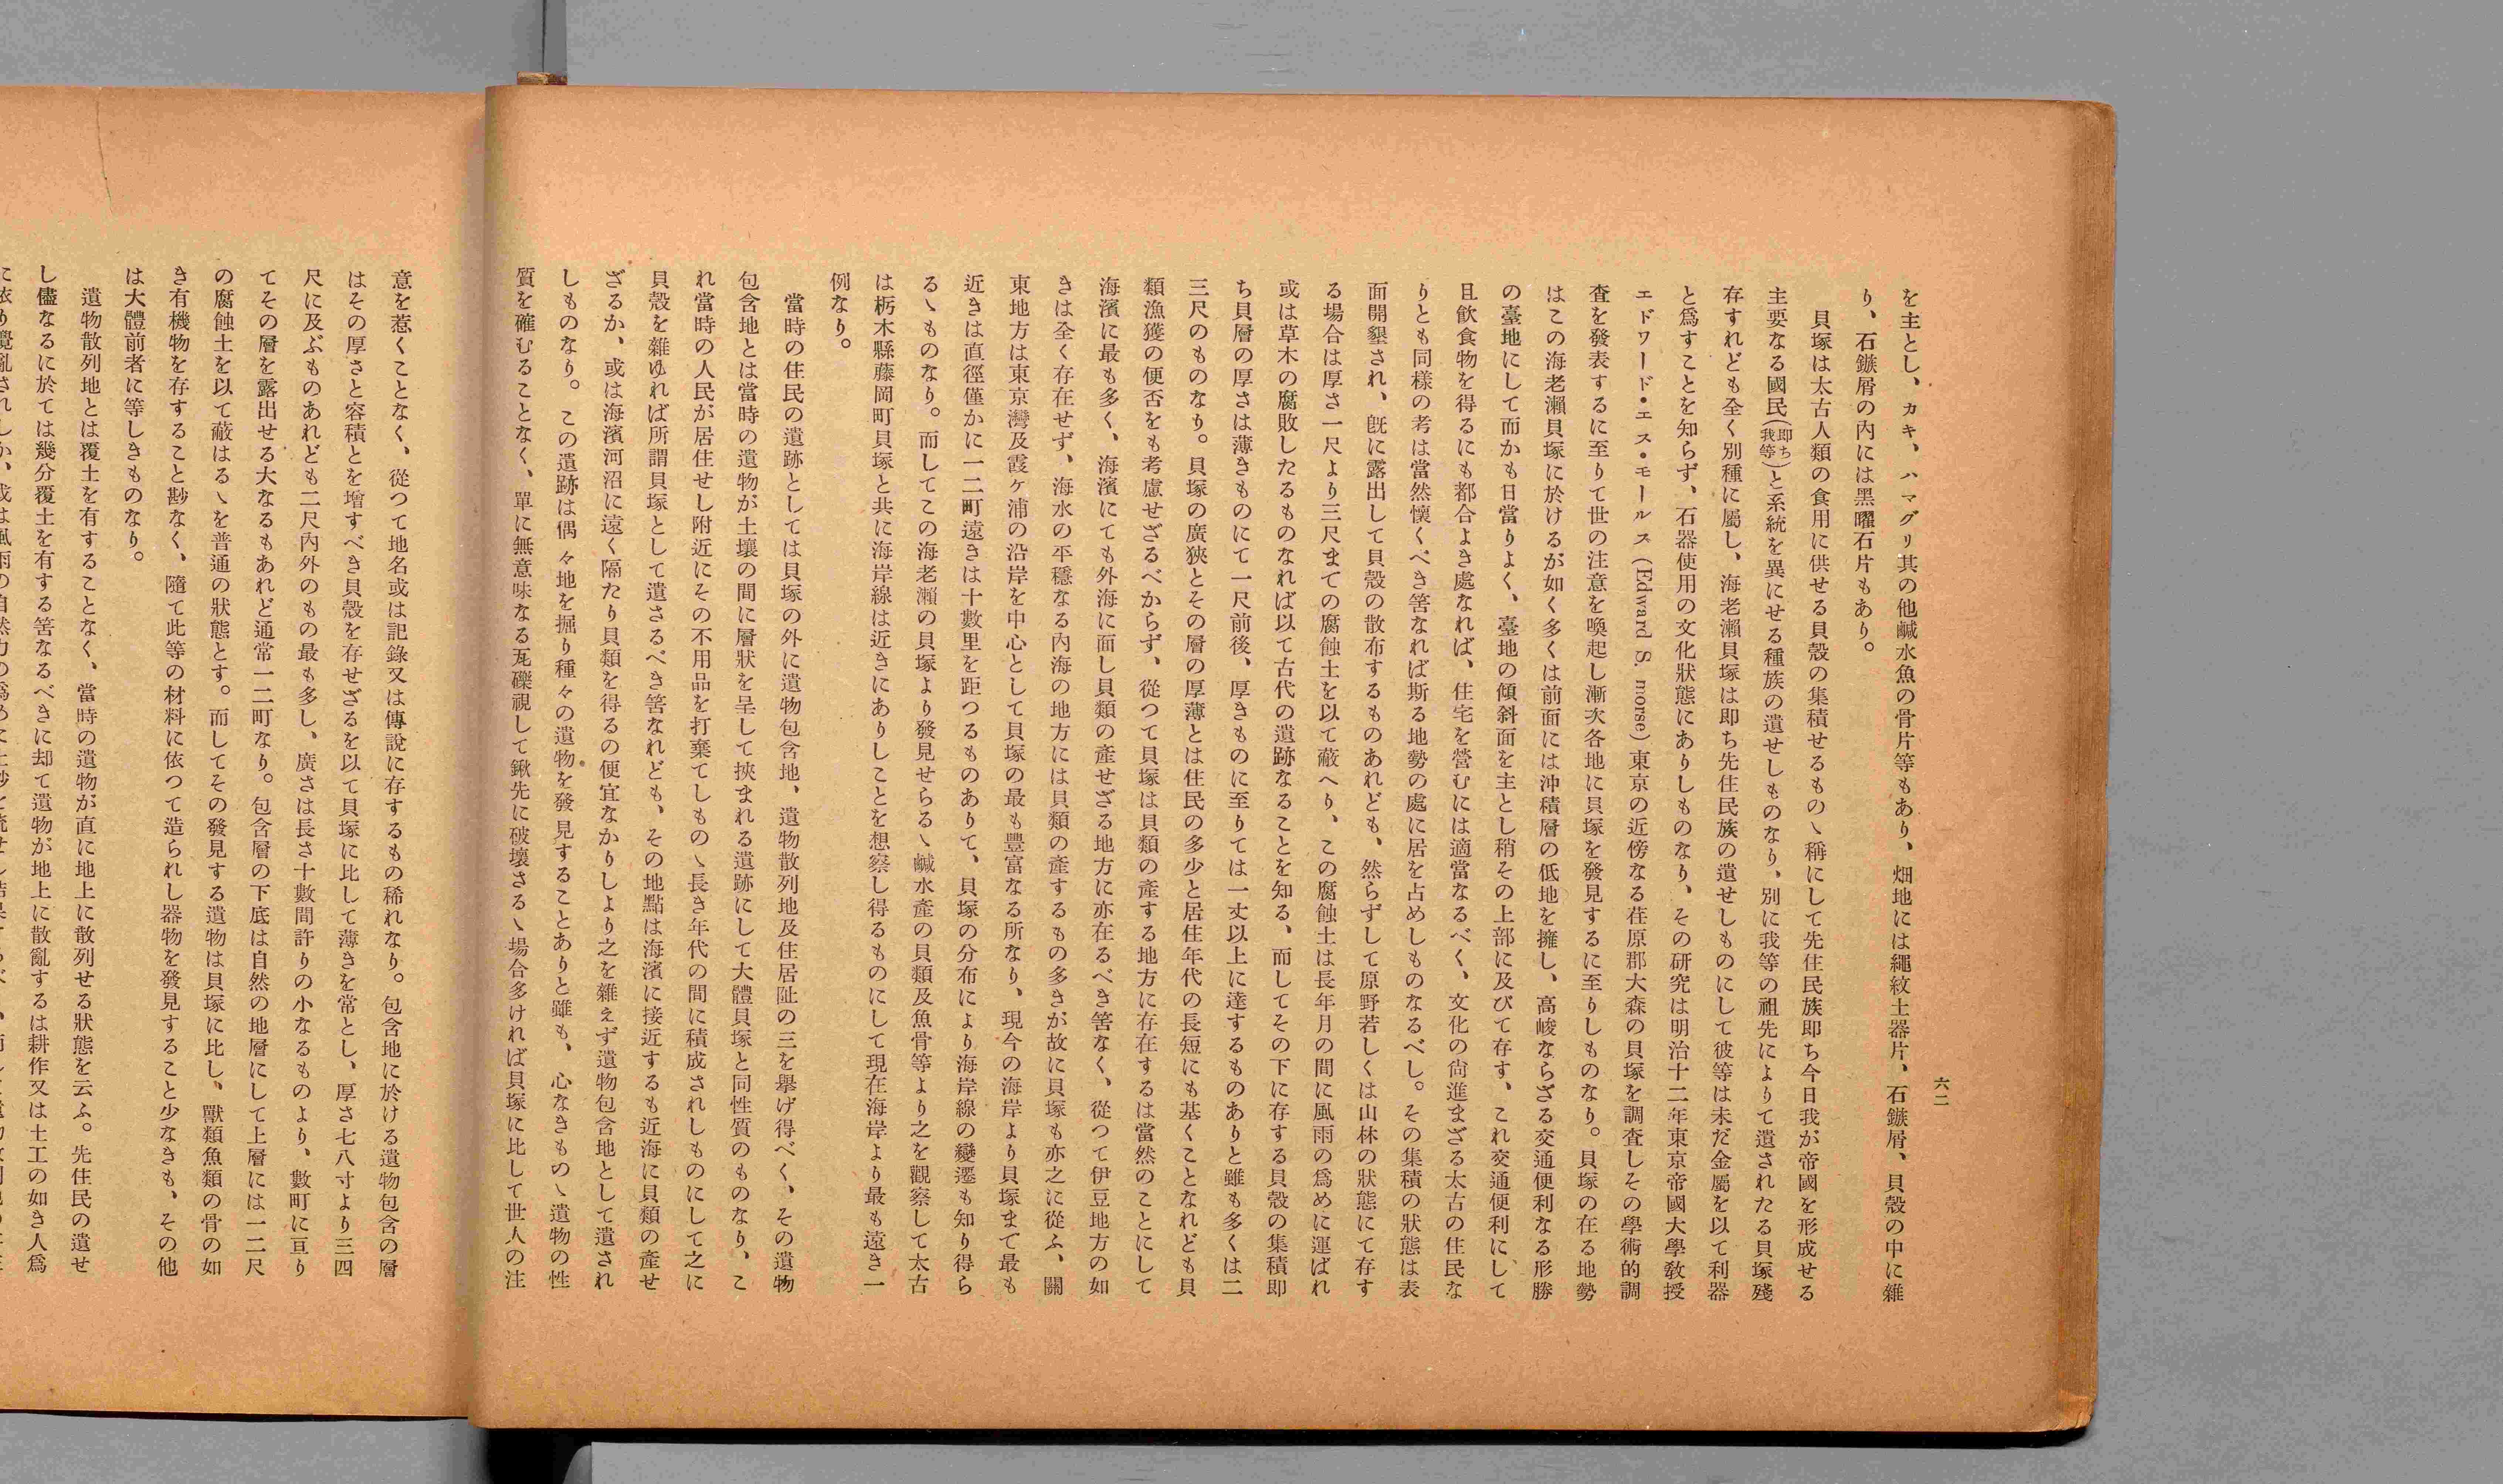 六二
を主とし、カキ、ハマグリ其の他鹹水魚の骨片等もあり、畑地には繩紋土器片、石鏃屑、貝殼の中に雜
り、石鏃屑の内には黑曜石片もあり。
貝塚は太古人類の食用に供せる貝殼の集積せるもの〻稱にして先住民族卽ち今日我が帝國を形成せる
主要なる國民(卽ち我等)と系統を異にせる種族の遺せしものなり、別に我等の祖先によりて遺されたる貝塚殘
存すれども全く別種に屬し、海老瀨貝塚は卽ち先住民族の遺せしものにして彼等は未だ金屬を以て利器
と爲すことを知らず、石器使用の文化狀態にありしものなり、その硏究は明治十二年東京帝國大學敎授
エドワード・エス・モールス(Edward S. morse)東京の近傍なる荏原郡大森の貝塚を調査しその學術的調
査を發表するに至りて世の注意を喚起し漸次各地に貝塚を發見するに至りしものなり。貝塚の在る地勢
はこの海老瀨貝塚に於けるが如く多くは前面には沖積層の低地を擁し、高峻ならざる交通便利なる形勝
の臺地にして而かも日當りよく、臺地の傾斜面を主とし稍その上部に及びて存す、これ交通便利にして
且飮食物を得るにも都合よき處なれば、住宅を營むには適當なるべく、文化の尙進まざる太古の住民な
りとも同樣の考は當然懷くべき筈なれば斯る地勢の處に居を占めしものなるべし。その集積の狀態は表
面開墾され、旣に露出して貝殼の散布するものあれども、然らずして原野若しくは山林の狀態にて存す
る場合は厚さ一尺より三尺までの腐蝕土を以て蔽へり、この腐蝕土は長年月の間に風雨の爲めに運ばれ
或は草木の腐敗したるものなれば以て古代の遺跡なることを知る、而してその下に存する貝殼の集積卽
ち貝層の厚さは薄きものにて一尺前後、厚きものに至りては一丈以上に達するものありと雖も多くは二
三尺のものなり。貝塚の廣狹とその層の厚薄とは住民の多少と居住年代の長短にも基くことなれども貝
類漁獲の便否をも考慮せざるべからず、從つて貝塚は貝類の產する地方に存在するは當然のことにして
海濱に最も多く、海濱にても外海に面し貝類の產せざる地方に亦在るべき筈なく、從つて伊豆地方の如
きは全く存在せず、海水の平穩なる內海の地方には貝類の產するもの多きが故に貝塚も亦之に從ふ、關
東地方は東京灣及霞ヶ浦の沿岸を中心として貝塚の最も豐富なる所なり、現今の海岸より貝塚まで最も
近きは直徑僅かに一二町遠きは十數里を距つるものありて、貝塚の分布により海岸線の變遷も知り得ら
る〻ものなり。而してこの海老瀨の貝塚より發見せらる〻鹹水產の貝類及魚骨等より之を觀察して太古
は栃木縣藤岡町貝塚と共に海岸線は近きにありしことを想察し得るものにして現在海岸より最も遠き一
例なり。
當時の住民の遺跡としては貝塚の外に遺物包含地、遺物散列地及住居阯の三を擧げ得べく、その遺物
包含地とは當時の遺物が土壤の間に層狀を呈して挾まれる遺跡にして大體貝塚と同性質のものなり、こ
れ當時の人民が居住せし附近にその不用品を打棄てしもの〻長き年代の間に積成されしものにして之に
貝殼を雜ゆれば所謂貝塚として遺さるべき筈なれども、その地點は海濱に接近するも近海に貝類の產せ
ざるか、或は海濱河沼に遠く隔たり貝類を得るの便宜なかりしより之を雜えず遺物包含地として遺され
しものなり。この遺跡は偶々地を掘り種々の遺物を發見することありと雖も、心なきもの〻遺物の性
質を確むることなく、單に無意味なる瓦礫視して鍬先に破壞さる〻場合多ければ貝塚に比して世人の注
意を惹くことなく、從つて地名或は記錄又は傳說に存するもの稀れなり。包含地に於ける遺物包含の層
はその厚さと容積とを增すべき貝殼を存せざるを以て貝塚に比して薄きを常とし、厚さ七八寸より三四
尺に及ぶものあれども二尺內外のもの最も多し、廣さは長さ十數間許りの小なるものより、數町に亘り
てその層を露出せる大なるもあれど通常一二町なり。包含層の下底は自然の地層にして上層には一二尺
の腐蝕土を以て蔽はる〻を普通の狀態とす。而してその發見する遺物は貝塚に比し、獸類魚類の骨の如
き有機物を存すること尠なく、隨て此等の材料に依つて造られし器物を發見すること少なきも、その他
は大體前者に等しきものなり。
遺物散列地とは覆土を有することなく、當時の遺物が直に地上に散列せる狀態を云ふ。先住民の遺せ
し儘なるに於ては幾分覆土を有する筈なるべきに却て遺物が地上に散亂するは耕作又は土工の如き人爲